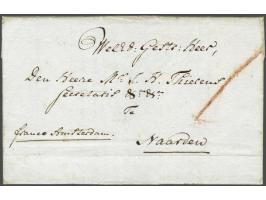 Weled: Gestr: Heer,
Den Heere Mr. J. H. Thierens
Secretaris &c. &c.
Te
Naarden
franco Amsterdam.